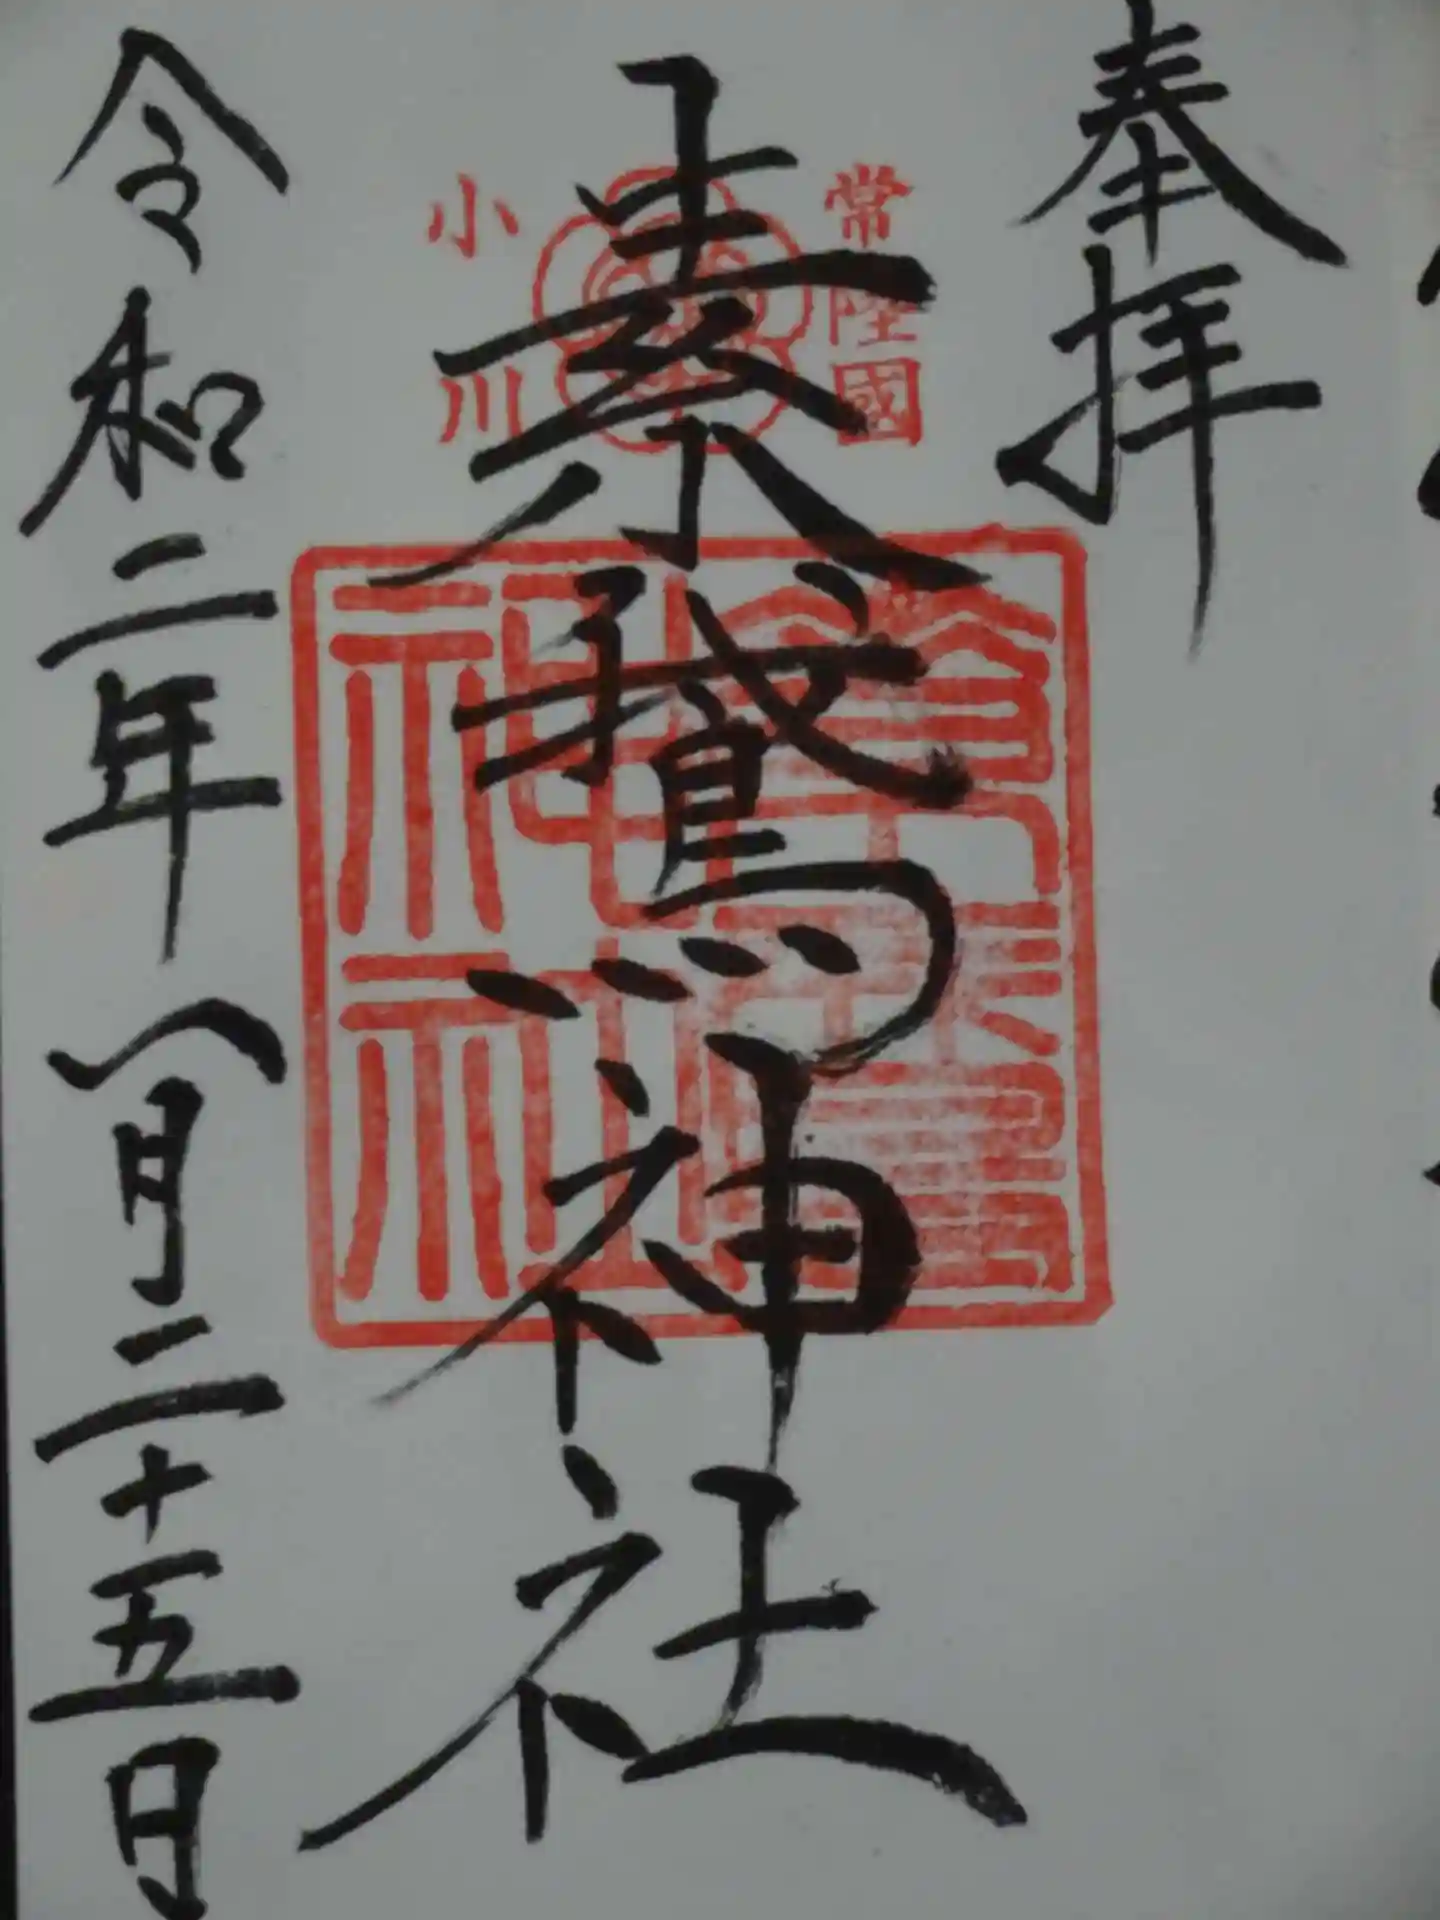 奉拝
常陸國
素鵞神社
小川
令和二年八月二十五日